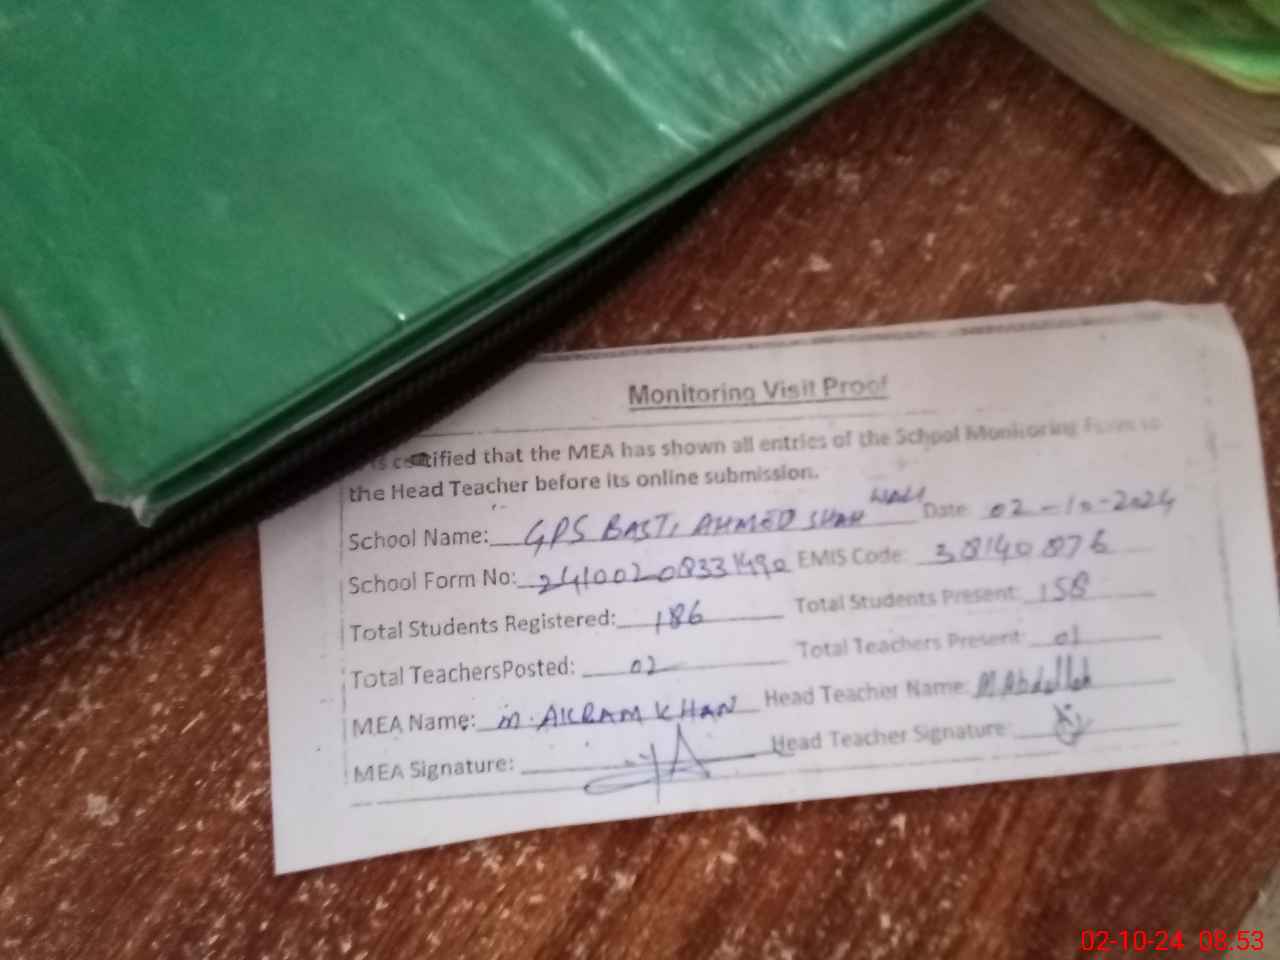 Monitoring Visit Proof
is certified that the MEA has shown all entries of the School Monitoring Form to
the Head Teacher before its online submission.
School Name: GPS BASTI AHMED SHAH WALI Date: 02-10-2024
School Form No: 24100208331490 EMIS Code: 38140876
Total Students Registered: 186 Total Students Present: 158
Total TeachersPosted: 02 Total Teachers Present: 01
MEA Name: M. AKRAM KHAN Head Teacher Name: M Abdullah
MEA Signature: Head Teacher Signature:
02-10-24 08:53